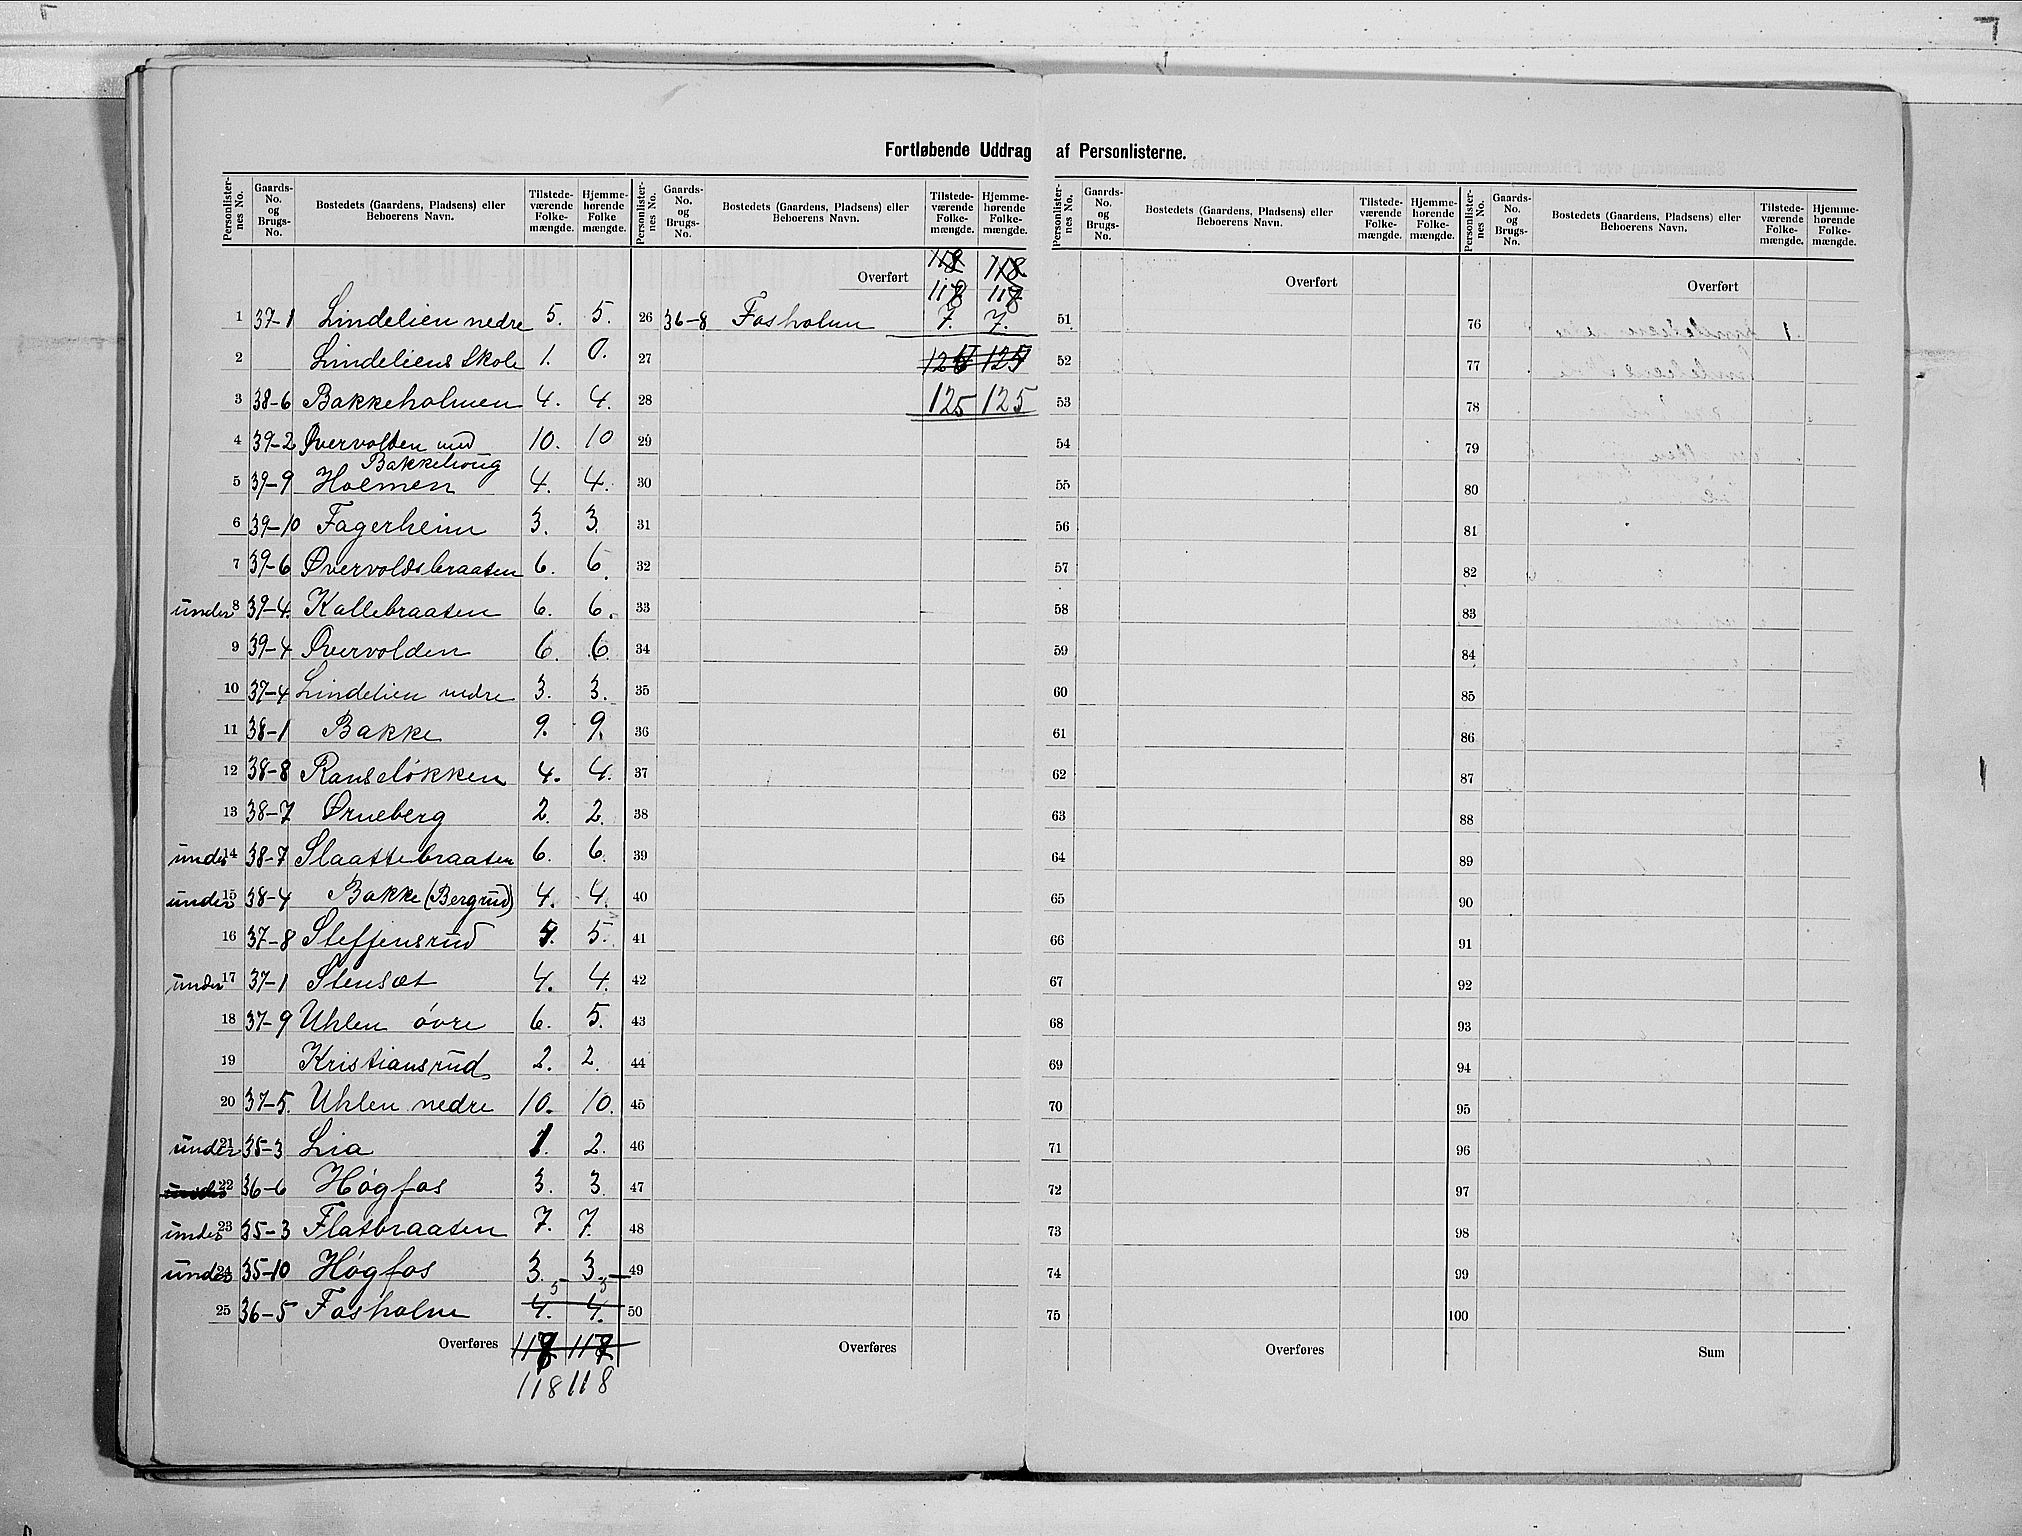 Fortløbende Uddrag af Personlisterne.
Personlister-nes No. Gaards-No. og Brugs-No. Bostedets (Gaardens, Pladsens) eller Beboerens Navn. Tilstede-værende Folke-mængde. Hjemme-hørende Folke mængde.
1 37-1 Lindelien nedre 5. 5.
2 Lindeliens Skole 1. 0.
3 38-6 Bakkeholmen 4. 4.
4 39-2 Øvervolden med 10. 10
Bakkehoug
5 39-9 Holmen 4. 4.
6 39-10 Fagerheim 3. 3.
7 39-6 Øvervoldsbraaten 6. 6.
under 8 39-4. Kollebraaten 6. 6.
9 39-4 Øvervolden 6. 6.
10 37-4 Lindelien nedre 3. 3.
11 38-1 Bakke 9. 9.
12 38-8 Ranseløkken 4. 4.
13 38-7 Ørneberg 2. 2.
under 14 38-7 Slaattebraaten 6. 6.
under 15 38-4 Bakke (Bergrud) 4. 4.
16 37-8 Steffensrud 5. 5.
under 17 37-1 Stensæt 4. 4.
18 37-9 Uhlen øvre 6. 5.
19 Kristiansrud 2. 2.
20 37-5. Uhlen nedre 10. 10.
under 21 35-3 Lia 1. 2.
under 22 36-6 Høgfos 3. 3.
under 23 35-3 Flatbraaten 7. 7.
under 24 35-10 Høgfos 3. 3.
5 5
25 36-5 Fosholm 4. 4.
Overføres 118 118
118 118
Personlister-nes No. Gaards-No. og Brugs-No. Bostedets (Gaardens, Pladsens) eller Beboerens Navn. Tilstede-værende Folke-mængde. Hjemme-hørende Folke-mængde.
118 118.
Overført 118 118
26 36-8 Fosholm 7. 7.
27 125 125
28 125 125
29
30
31
32
33
34
35
36
37
38
39
40
41
42
43
44
45
46
47
48
49
50
Overføres
Personlister-nes No. Gaards-No. og Brugs-No. Bostedets (Gaardens, Pladsens) eller Beboerens Navn. Tilstede-værende Folke-mængde. Hjemme-hørende Folke-mængde.
Overført
51
52
53
54
55
56
57
58
59
60
61
62
63
64
65
66
67
68
69
70
71
72
73
74
75
Overføres
Personlister-nes No. Gaards-No. og Brugs-No. Bostedets (Gaardens, Pladsens) eller Beboerens Navn. Tilstede-værende Folke-mængde. Hjemme-hørende Folke-mængde.
Overført
76
77
78
79
80
81
82
83
84
85
86
87
88
89
90
91
92
93
94
95
96
97
98
99
100
Sum